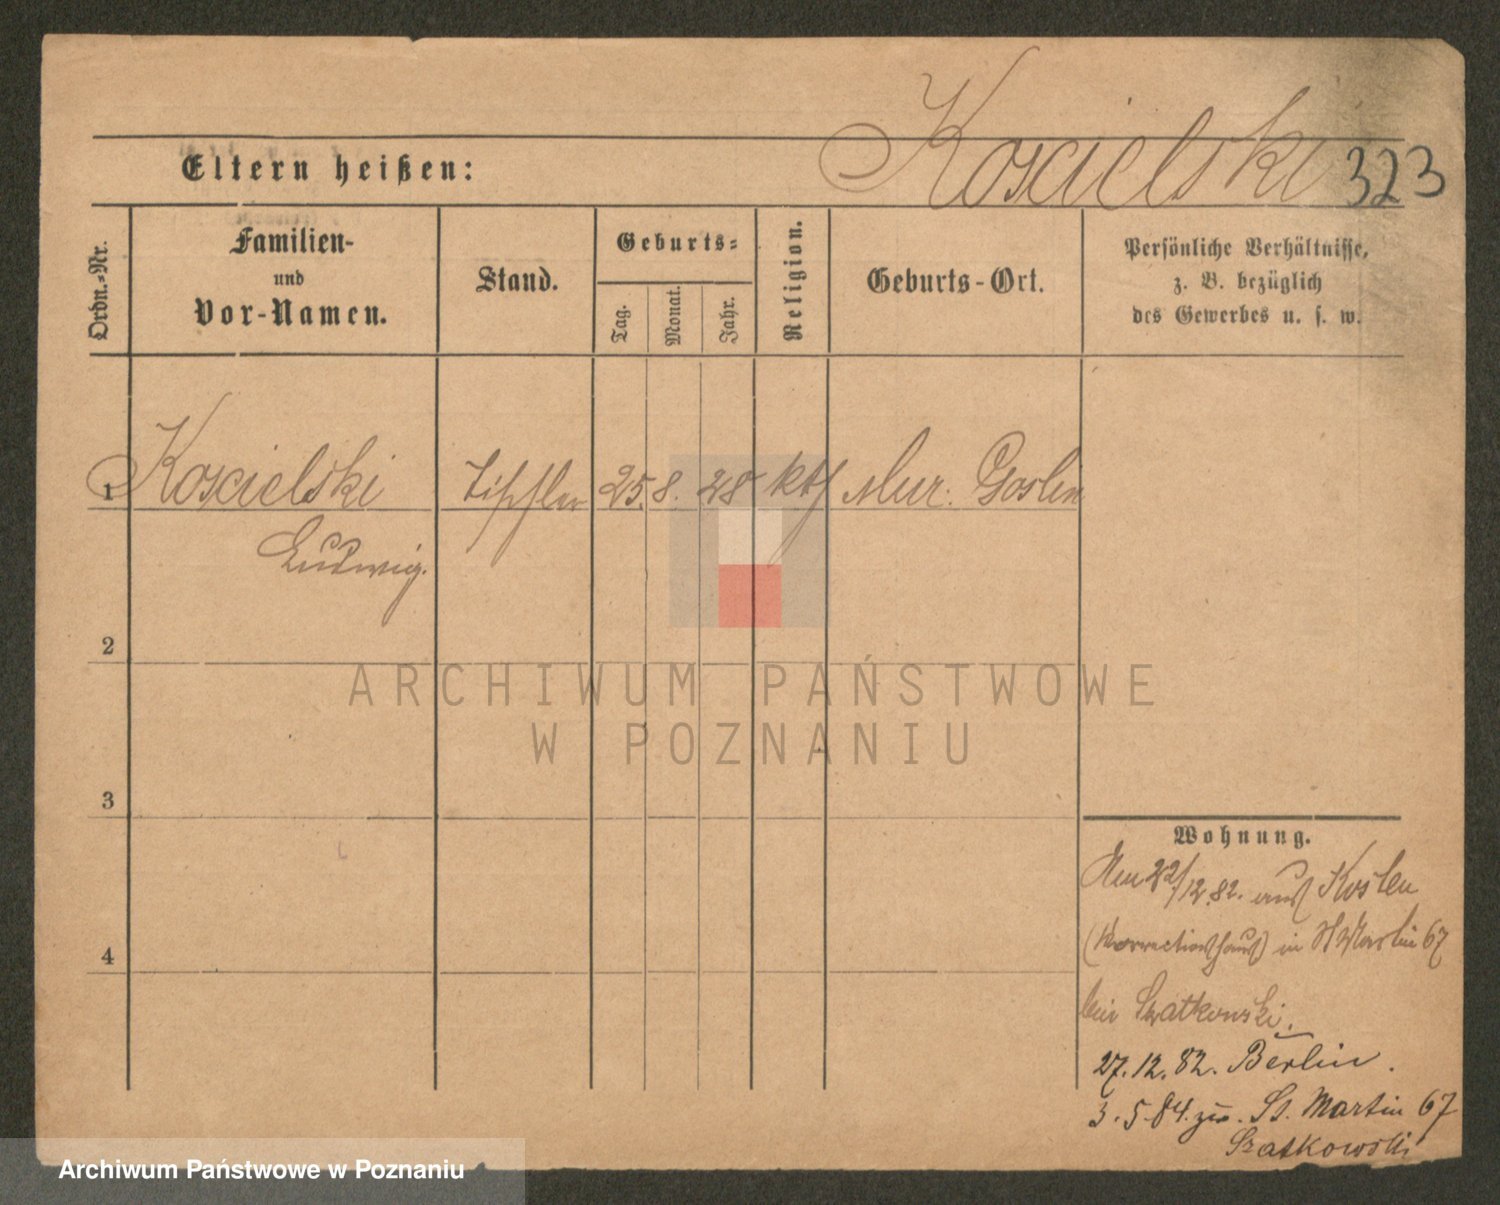 Koscielski 323
Eltern heißen:
Ordn.-Nr.
Familien-
und
Vor-Namen.
Stand.
Geburts-
Tag.
Monat.
Jahr.
Religion.
Geburts-Ort.
Persönliche Verhältnisse,
z. B. bezüglich
des Gewerbes u. s. w.
1 Koscielski Tischler 25. 8. 28 kth Mur. Goslin
Ludwig.
2
3
4
Wohnung.
Den 22/12.82. aus Kosten
(Korrectionshaus) in St Martin 67
bei Szatkowski.
27.12.82. Berlin.
3.5.84. zu. St. Martin 67
Szatkowski
ARCHIWUM PAŃSTWOWE
W POZNANIU
Archiwum Państwowe w Poznaniu